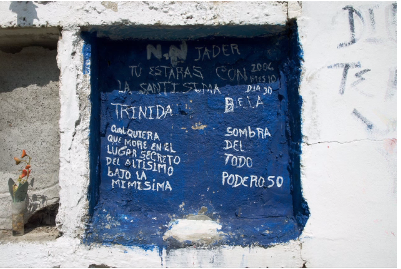 N.N JADER
TU ESTARAS CON
LA SANTISIMA DIA 30
TRINIDA
CUALQUIERA
QUE MORE EN EL
LUGAR SECRETO
DEL ALTISIMO
BAJO LA
MIMISIMA
SOMBRA
DEL
TODO
PODEROSO